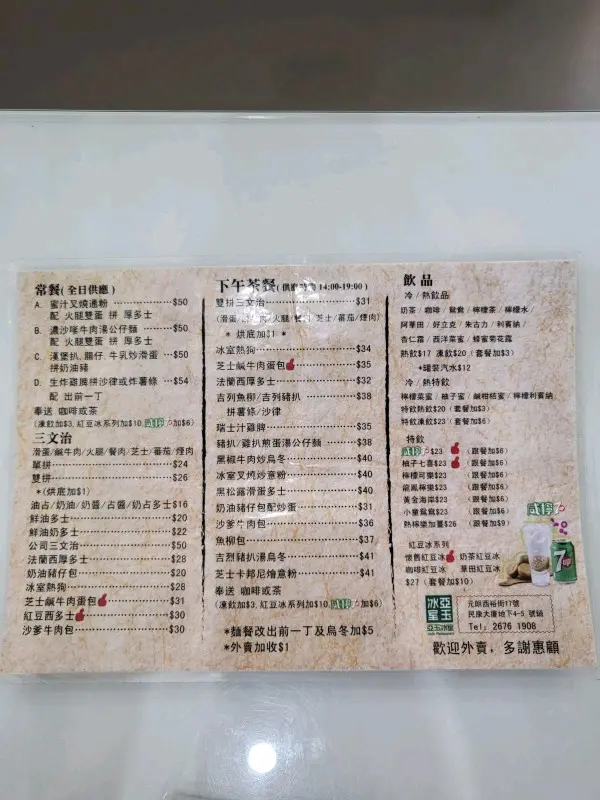 常餐(全日供應)
A. 蜜汁叉燒通粉 $50
配 火腿雙蛋 拼 厚多士
B. 濃沙嗲牛肉湯公仔麵 $50
配 火腿雙蛋 拼 厚多士
C. 漢堡扒、腸仔、牛乳炒滑蛋 $50
拼奶油豬
D. 生炸雞脾拼沙律或炸薯條 $54
配 出前一丁
奉送 咖啡或茶
(凍飲加$3,紅豆冰系列加$10, 加$6)
三文治
滑蛋/鹹牛肉/火腿/餐肉/芝士/蕃茄/煙肉
單拼 $24
雙拼 $26
*(烘底加$1)
油占/奶油/奶醬/占醬/奶占多士$16
鮮油多士 $20
鮮油奶多士 $22
公司三文治 $50
法蘭西厚多士 $28
奶油豬仔包 $20
冰室熱狗 $28
芝士鹹牛肉蛋包 $31
紅豆西多士 $30
沙爹牛肉包 $30
下午茶餐(供應時間 14:00-19:00)
雙拼三文治 $31
(滑蛋/ /火腿/餐肉/芝士/蕃茄/煙肉)
* 烘底加$1 *
冰室熱狗 $34
芝士鹹牛肉蛋包 $35
法蘭西厚多士 $32
吉列魚柳/吉列豬扒 $38
拼薯條/沙律
瑞士汁雞脾 $35
豬扒/雞扒煎蛋湯公仔麵 $38
黑椒牛肉炒烏冬 $40
冰室叉燒炒意粉 $40
黑松露滑蛋多士 $40
奶油豬仔包配炒蛋 $31
沙爹牛肉包 $36
魚柳包 $37
吉烈豬扒湯烏冬 $41
芝士卡邦尼燴意粉 $41
奉送 咖啡或茶
(凍飲加$3,紅豆冰系列加$10, 加$6)
*麵餐改出前一丁及烏冬加$5
*外賣加收$1
飲品
冷/熱飲品
奶茶/咖啡/鴛鴦/檸檬茶/檸檬水/
阿華田/好立克/朱古力/利賓納/
杏仁霜/西洋菜蜜/蜂蜜菊花露
熱飲$17 凍飲$20(套餐加$3)
*罐裝汽水$12
冷/熱特飲
檸檬菜蜜/柚子蜜/鹹柑桔蜜/檸檬利賓納
特飲熱飲$20(套餐加$3)
特飲凍飲$23(套餐加$6)
特飲
$23 (跟餐加$6)
柚子七喜$23 (跟餐加$6)
檸檬可樂$23 (跟餐加$6)
龍鳳檸樂$23 (跟餐加$6)
黃金海岸$23 (跟餐加$6)
小童鴛鴦$23 (跟餐加$6)
熱檸樂加薑$26 (跟餐加$9)
7up
紅豆冰系列
懷舊紅豆冰 奶茶紅豆冰
咖啡紅豆冰 華田紅豆冰
$27(套餐加$10)
冰室
亞玉
亞玉冰室
元朗西裕街17號
民康大廈地下4-5 號鋪
Tel: 2676 1908
歡迎外賣,多謝惠顧